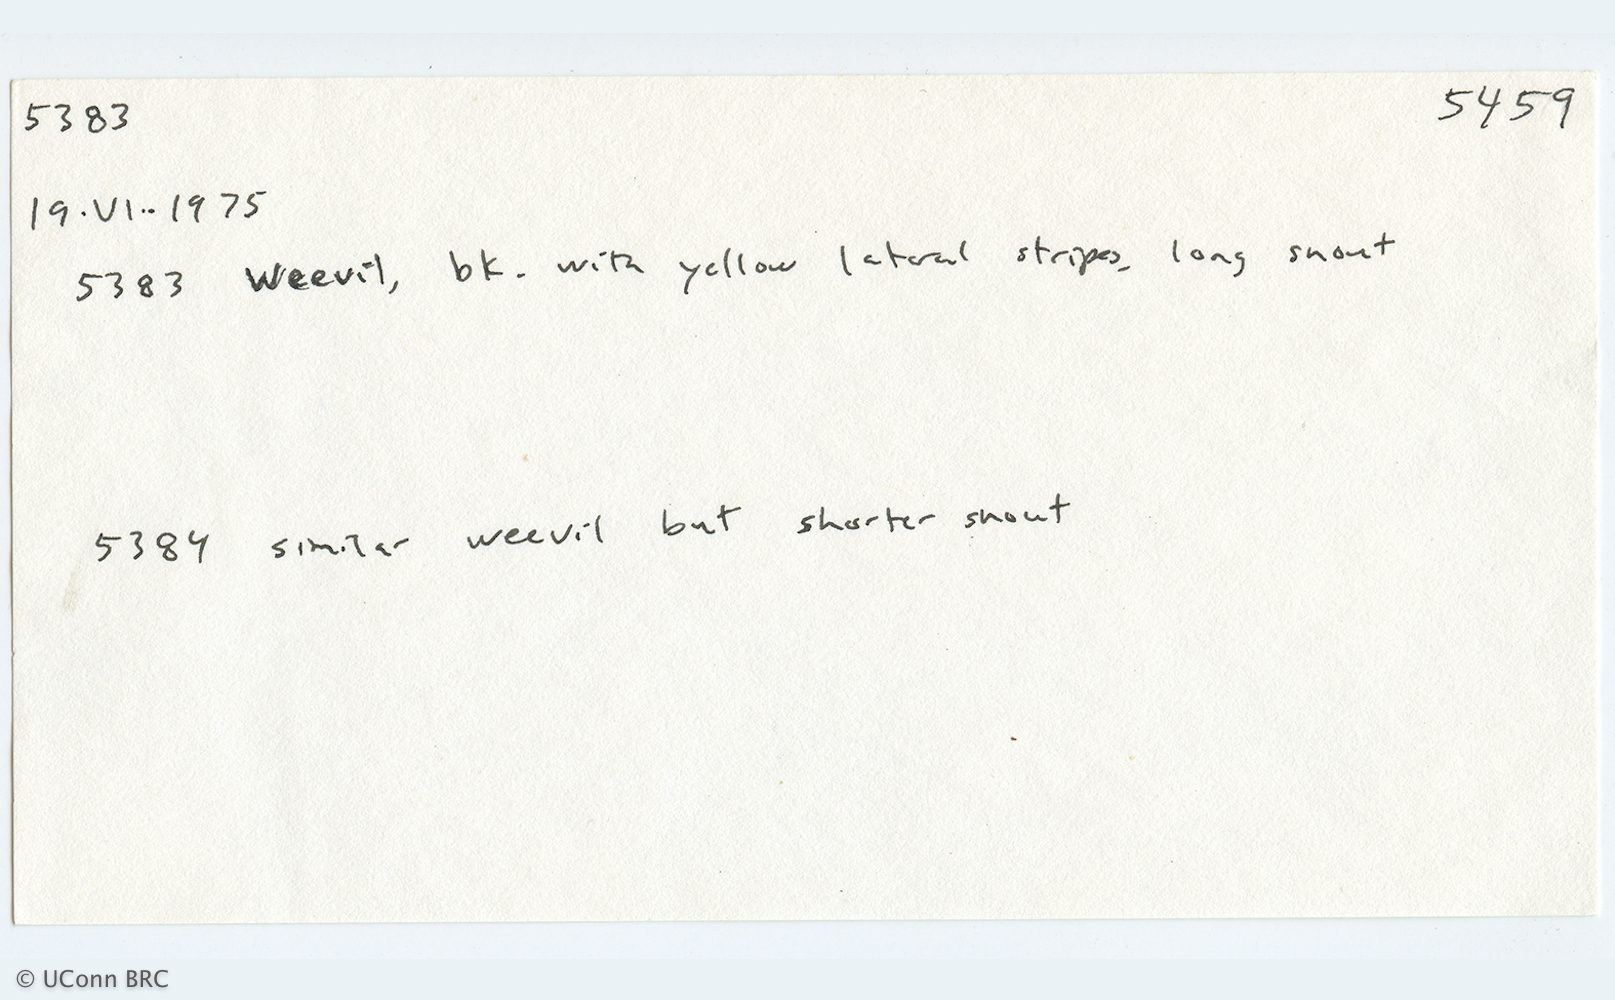 5383 5459
19.VI..1975
5383 Weevil, bk. with yellow lateral stripes, long snout
5384 similar weevil but shorter snout
© UConn BRC